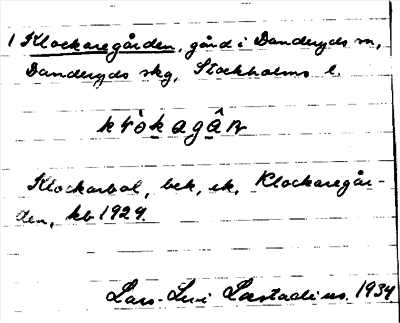 1 Klockaregården, gård i Danderyds sn,
Danderyds skg, Stockholms l.
Klockarbol, bek, ek, Klockaregår-
den, kb 1929.
Lars-Levi Læstadius. 1934